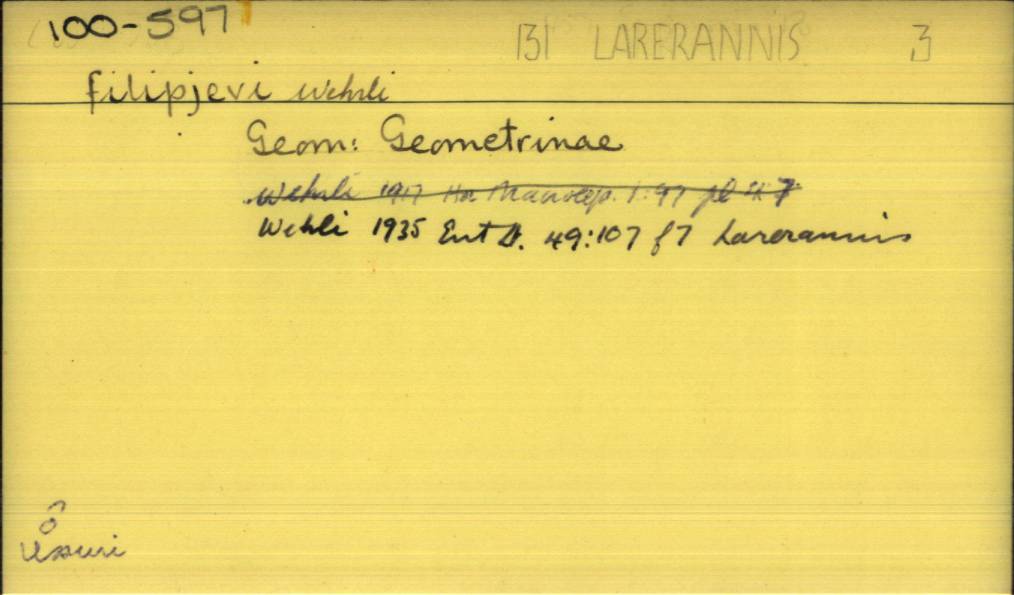 100-597
131 LARERANNIS 3
filipjevi Wehrli
Geom: Geometrinae
Wehrli 1917 Macrolep. 1:97 pl 7
Wehrli 1935 Ent Z. 49:107 f7 Larerannis
Ussuri